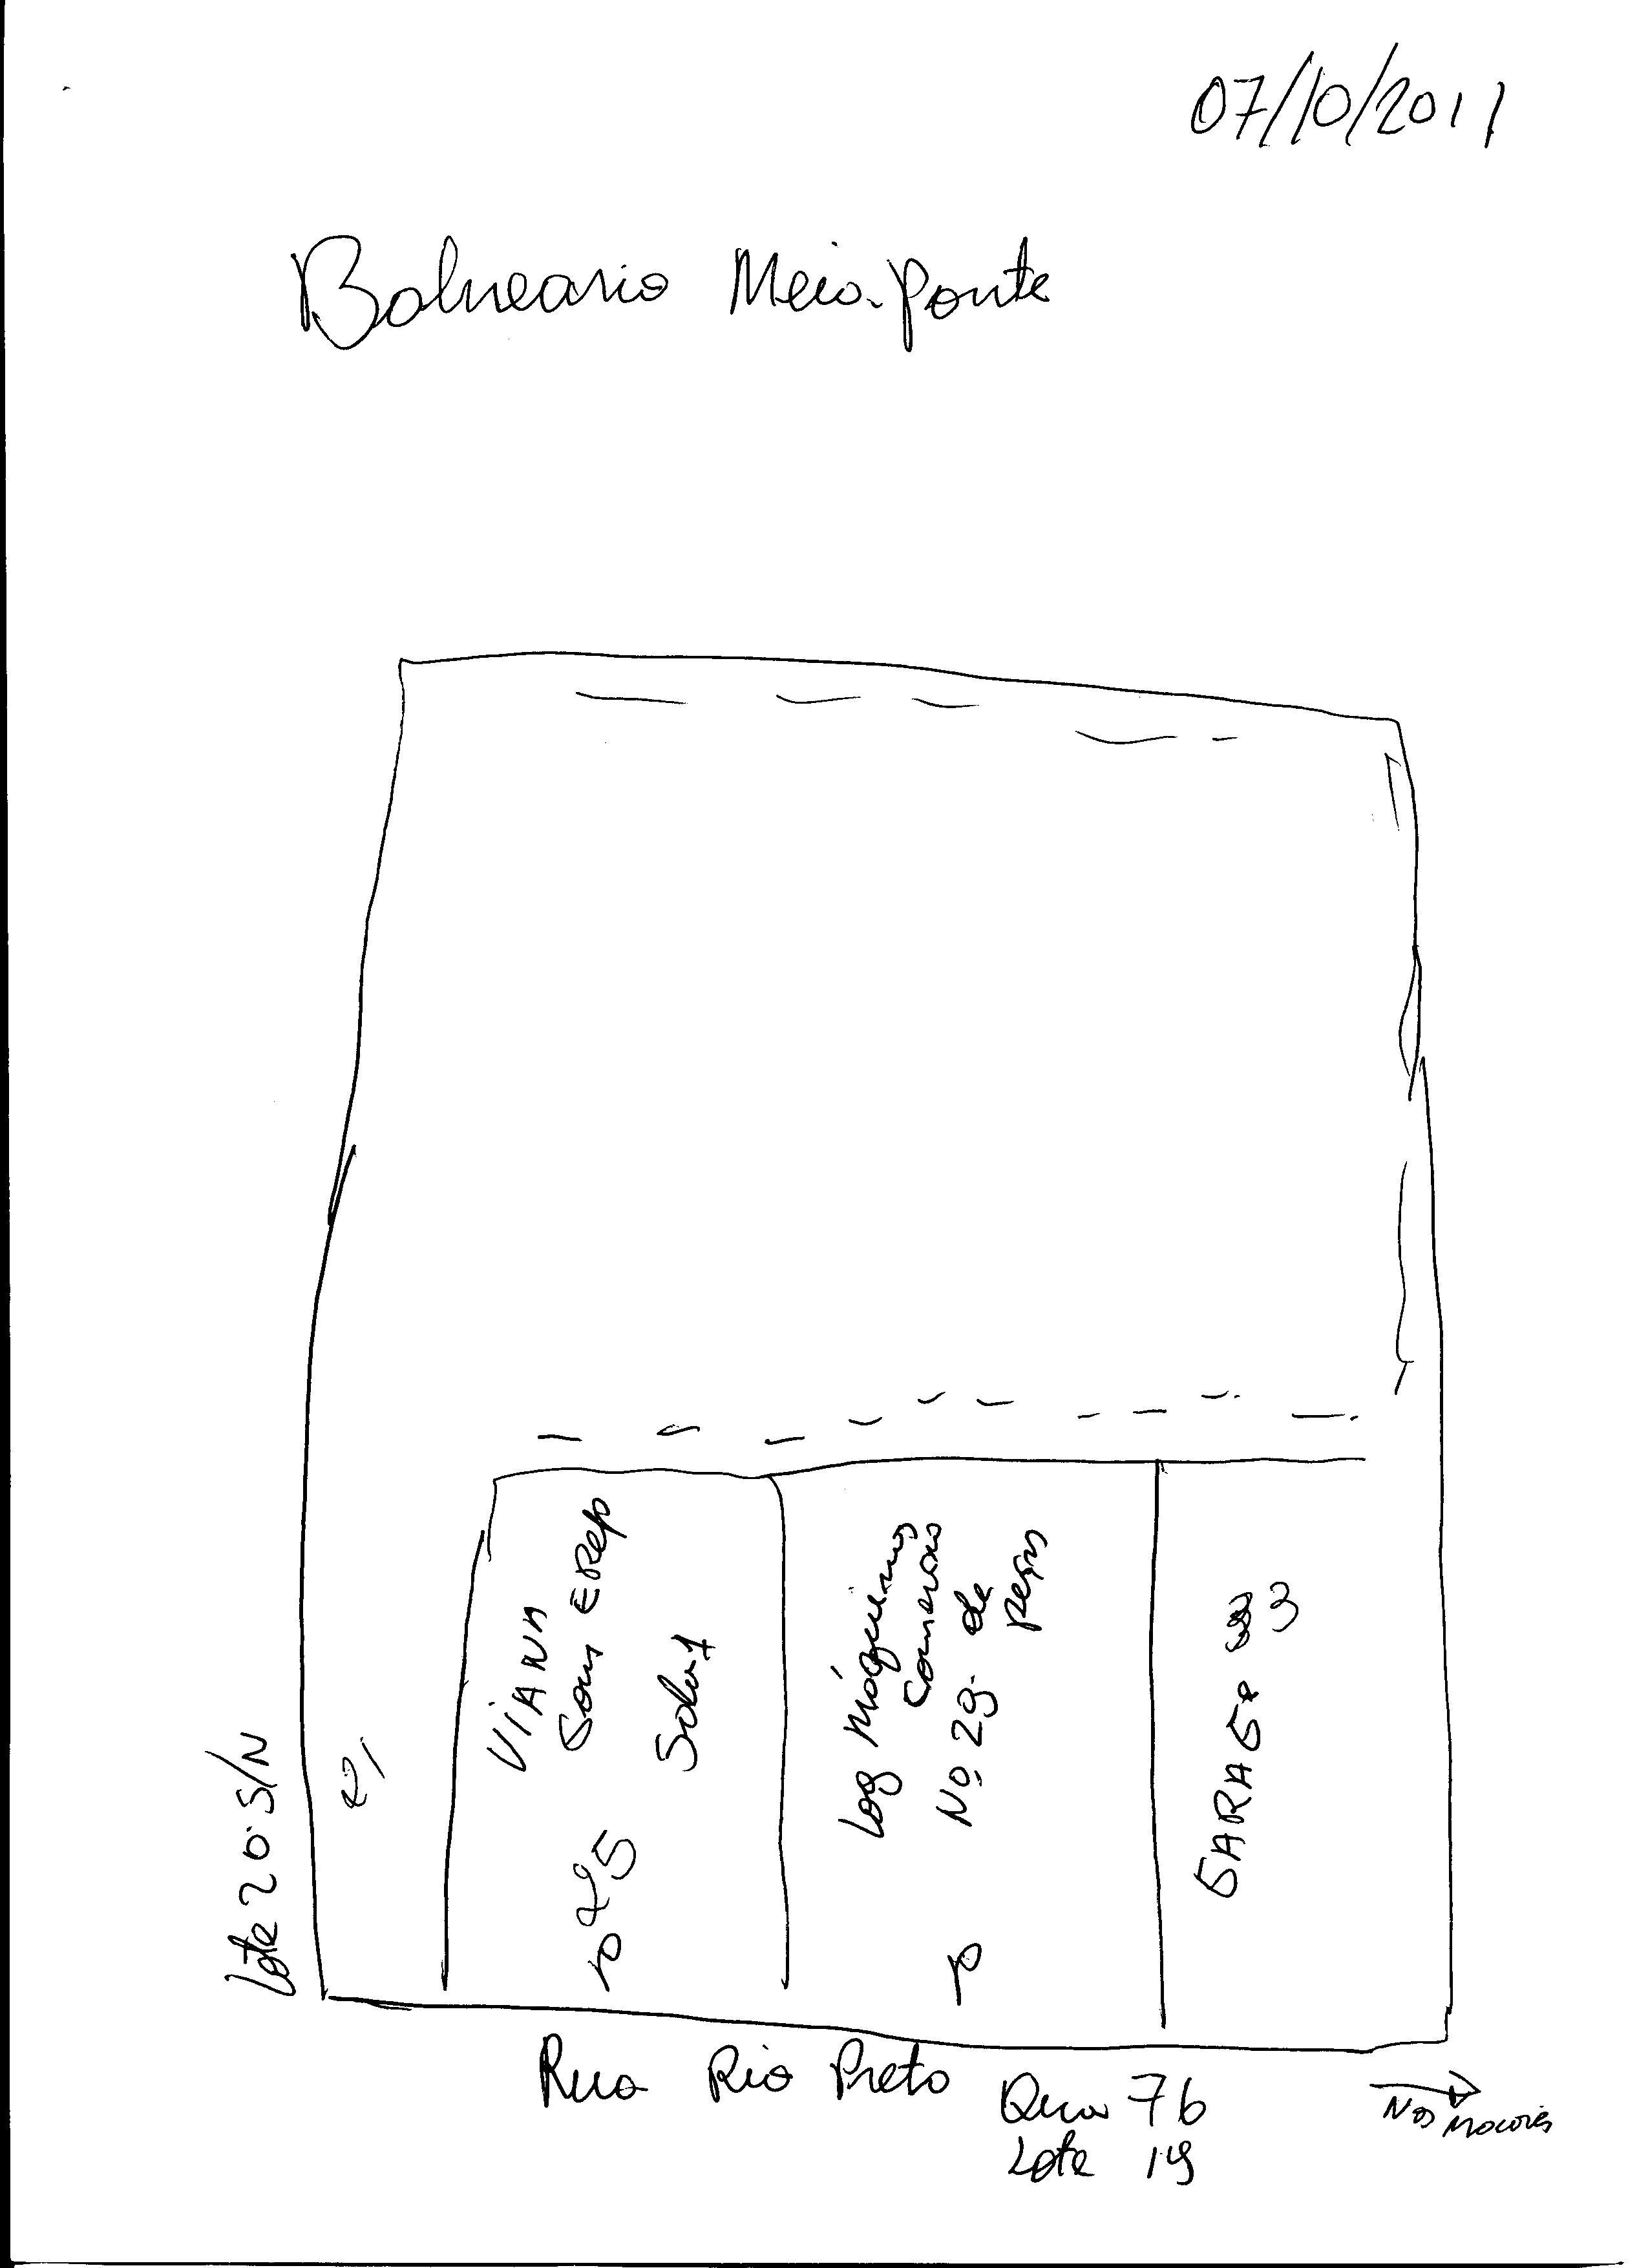 07/10/2011
Balneario Meia-Ponte
Lote 20 S/N
VIANA
Som E REP
Sala 1
Log Máquinas
Comercio
Nº 29 de
peças
GARAGe 3
Rua Rio Preto
Qua 76
Lote 19
Nos maiores